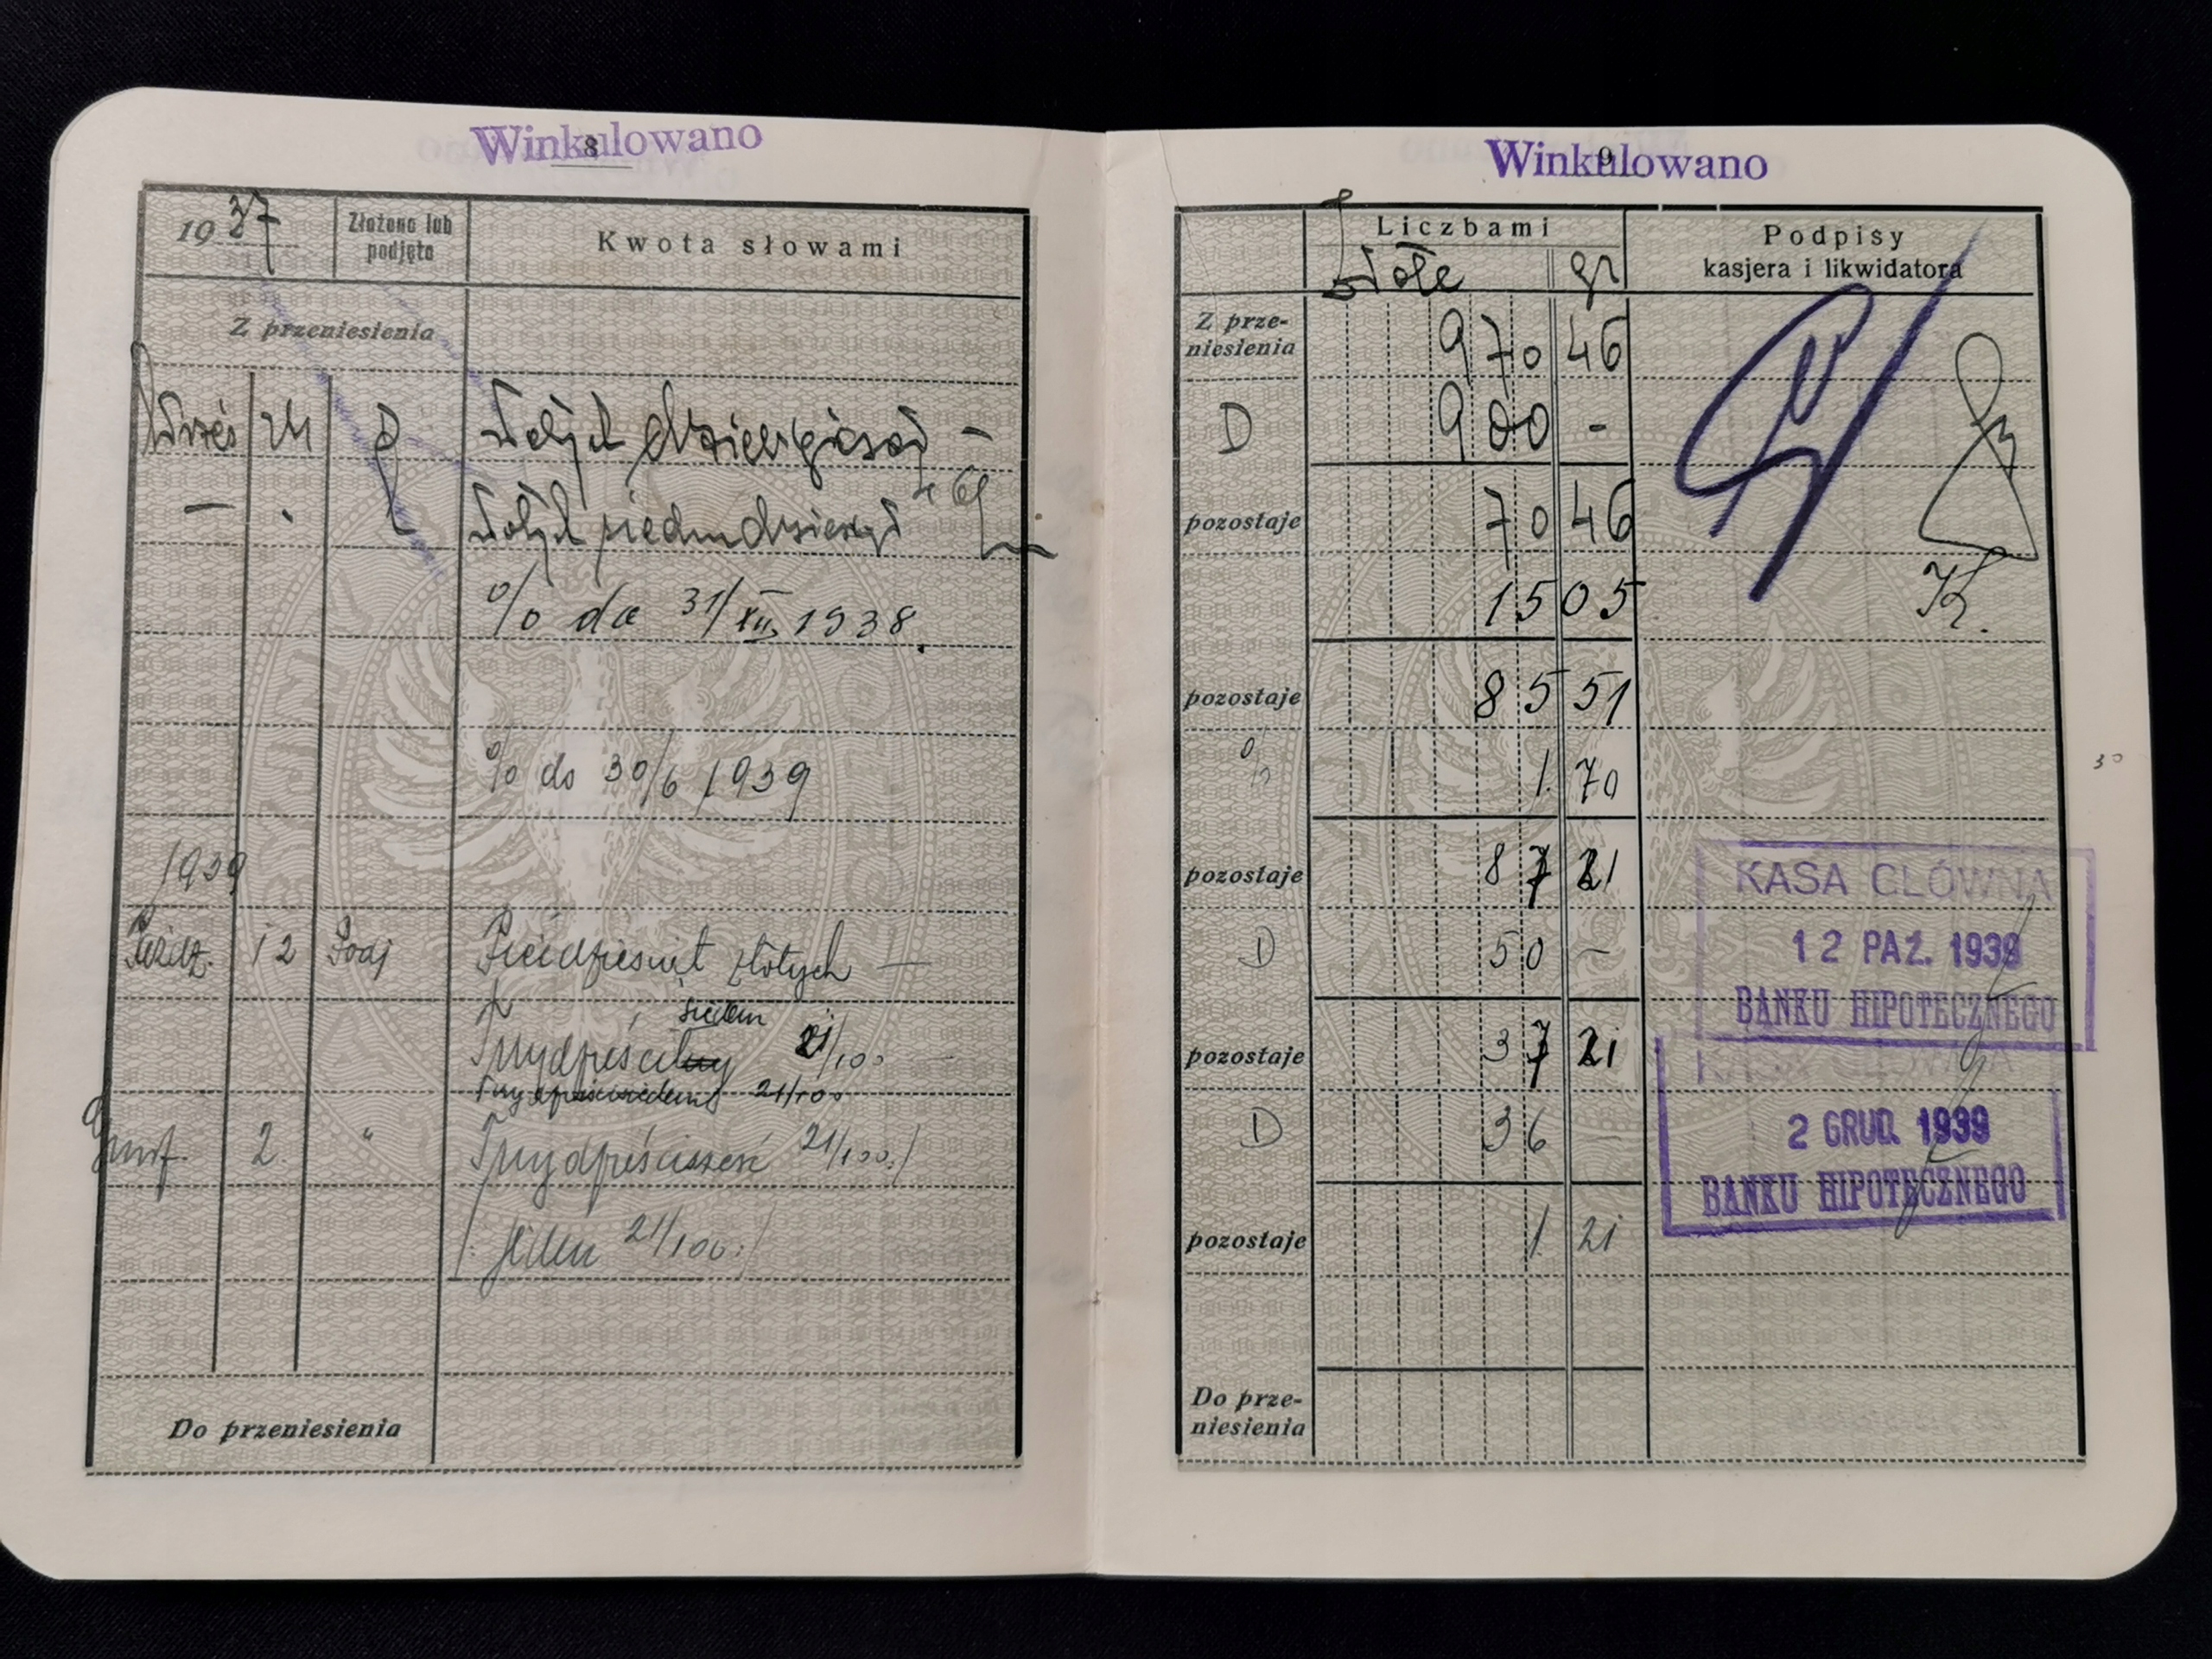 Winkulowano
8
1937 Złożono lub podjęto Kwota słowami
Z przeniesienia
Wrześ 24 P złotych dziewięćset —
— . złotych siedmdziesiąt 46
% do 31/XII 1938.
% do 30/6 1939
1939
Paźdz. 12 Podj Pięćdziesiąt złotych —
siedem
Trzydzieści 21/100 —
Trzydzieścisiedem 21/100
Grud. 2. " Trzydzieścisześć 21/100:/
/: Jeden 21/100:/
Do przeniesienia
Winkulowano
9
Liczbami Podpisy
kasjera i likwidatora
Złote gr
Z prze-
niesienia 970 46
D 900 -
pozostaje 70 46
15 05
K.
pozostaje 85 51
% 1. 70
30
pozostaje 87 21
KASA GŁÓWNA
12 PAŹ. 1939
BANKU HIPOTECZNEGO
D 50 —
pozostaje 37 21
KASA GŁÓWNA
2 GRUD. 1939
BANKU HIPOTECZNEGO
D 36 —
pozostaje 1. 21
Do prze-
niesienia